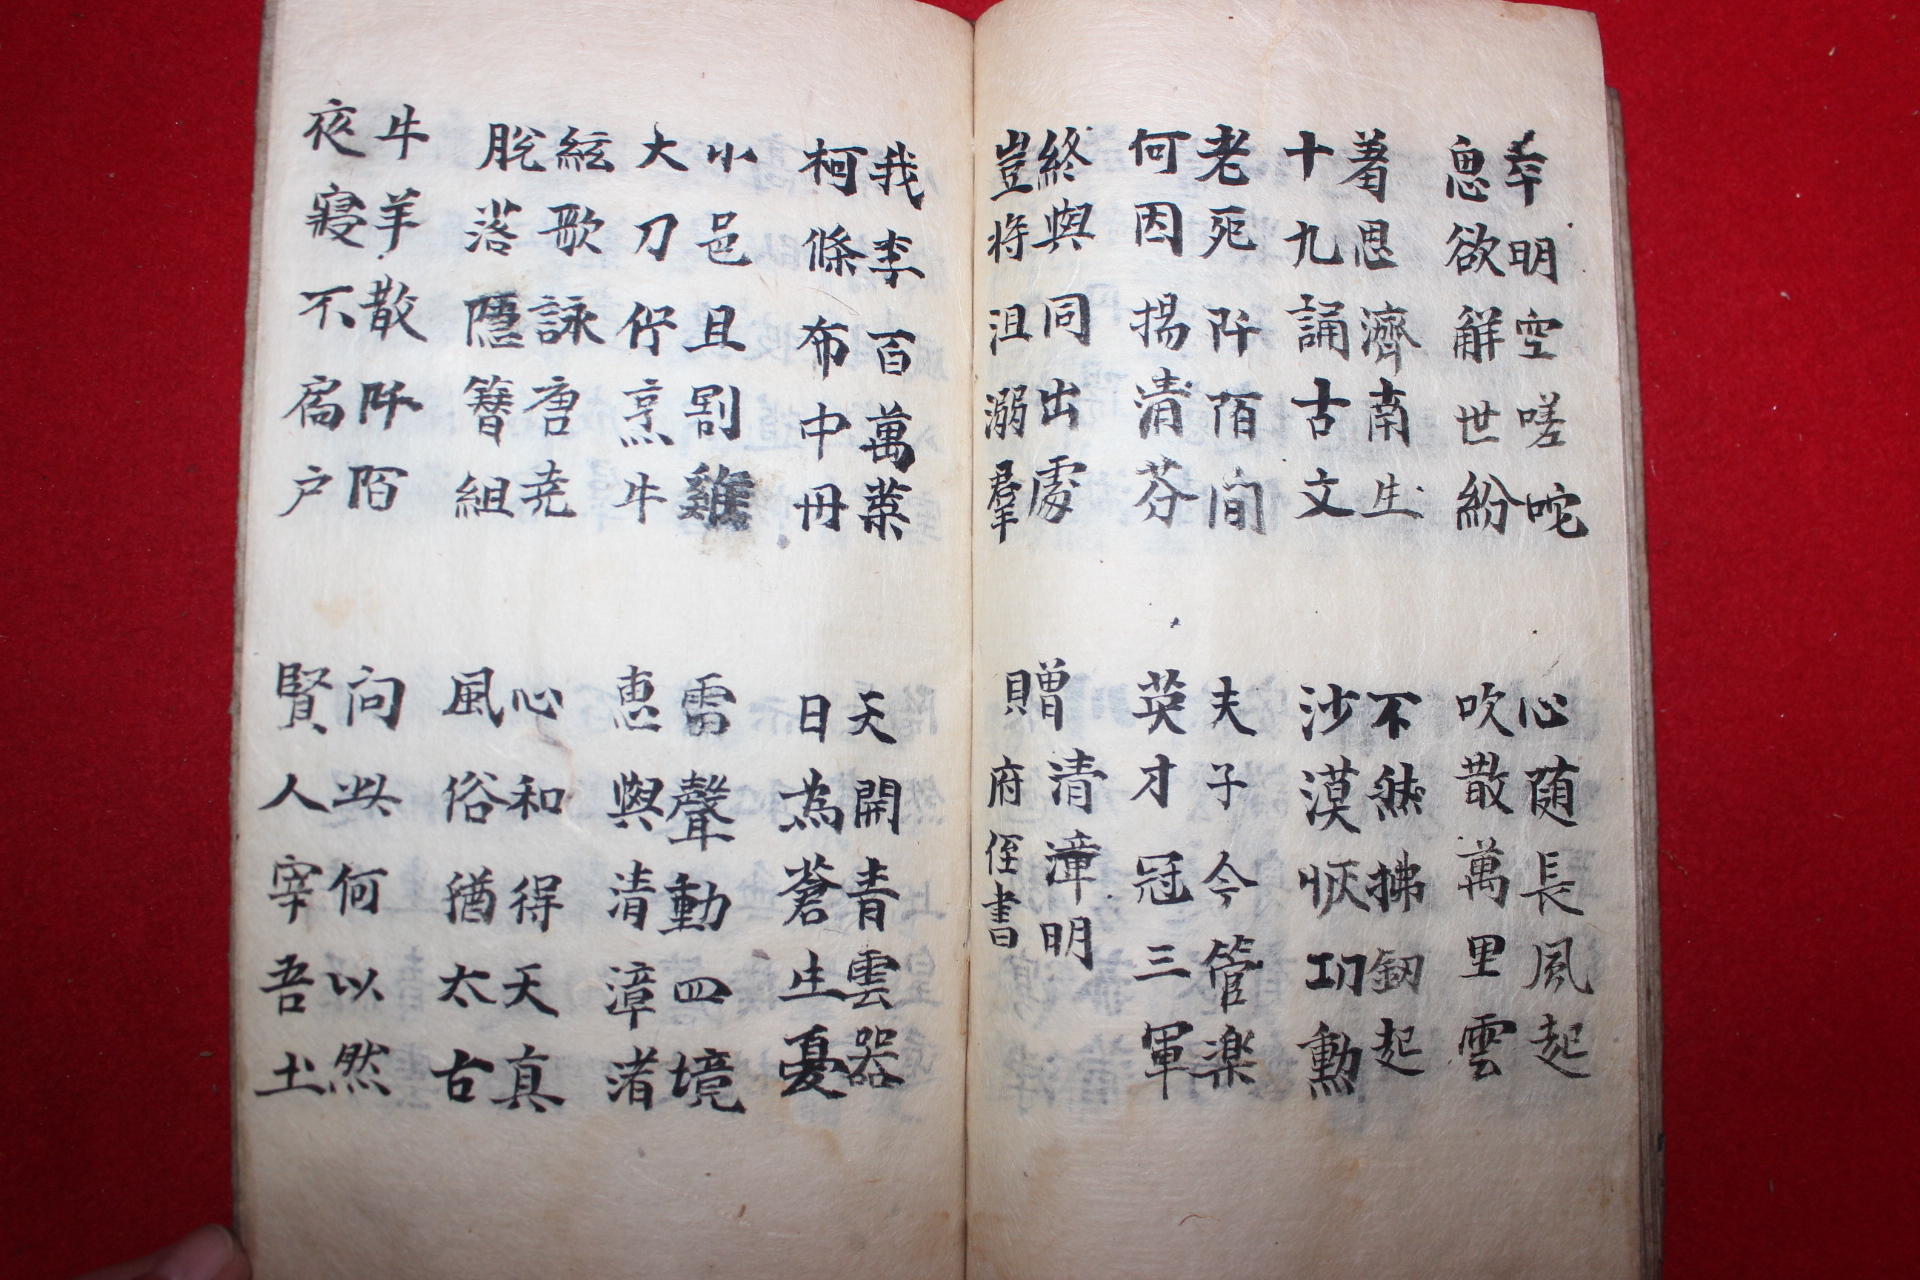 平明空嗟咜
思欲解世紛
心随長風起
吹散萬里雲
著恩濟南生
十九誦古文
不然拂釼起
沙漠恢功勳
老死阡陌間
何因揚清芬
夫子今管楽
英才冠三軍
終與同出處
豈将沮溺羣
贈清漳明
府侄書
我李百萬葉
柯條布中冊
天開青雲器
日為蒼生憂
小邑且割雞
大刀佇烹牛
雷聲動四境
惠與清漳渚
絃歌詠唐堯
脫落隱簪組
心和得天真
風俗猶太古
牛羊散阡陌
夜寝不扃戶
问此何以然
賢人宰吾土